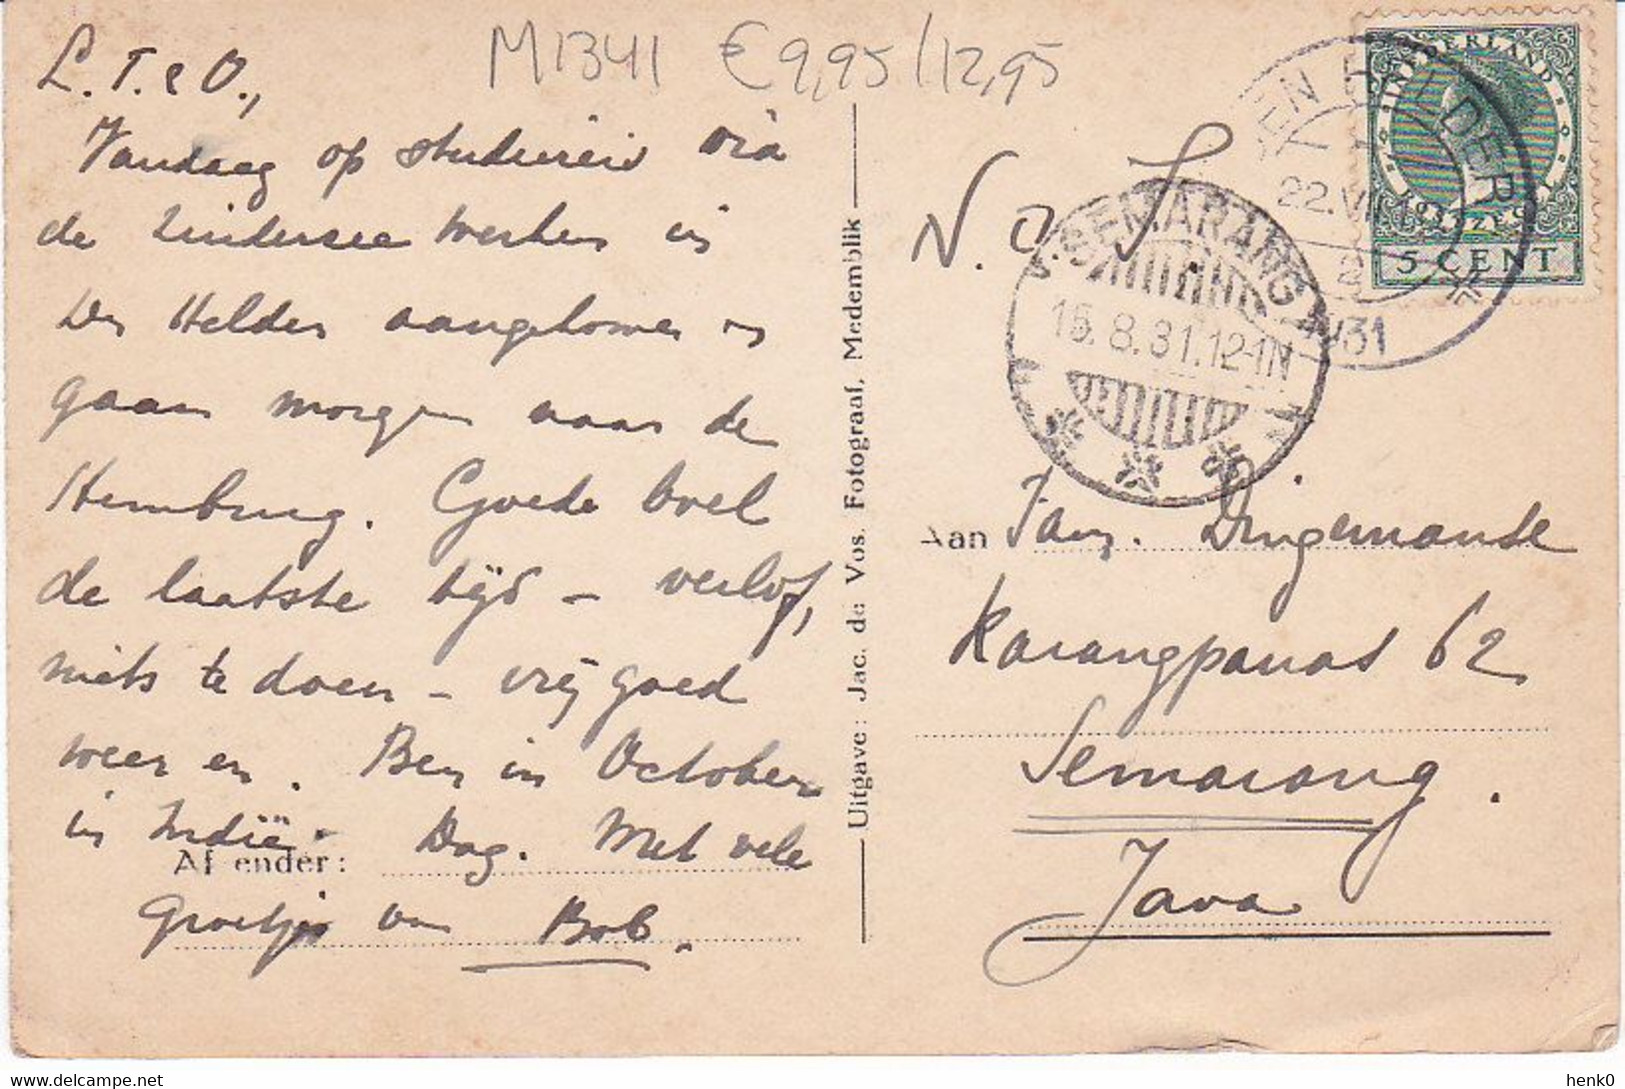 M1341 €9,95/12,95
L. T. & O.,
Vandaag op studiereis via
de Zuiderzee werken in
Den Helder aangekomen en
gaan morgen naar de
Hembrug. Goede boel
de laatste tijd – verlof,
niets te doen – vrij goed
weer en. Ben in October
in Indië. Dag. Met vele
Afzender:
groetjes van Bob.
Uitgave: Jac. de Vos. Fotograaf, Medemblik
N. O. I.
NEDERLAND
5 CENT
DEN HELDER
22.VII
1931
SEMARANG
15.8.31.12-1N
Aan Fam. Dingemanse
Karangpanas 62
Semarang.
Java
henk0